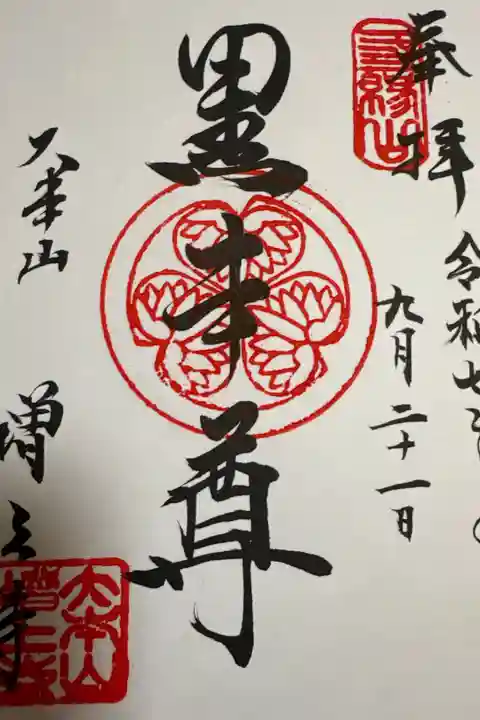 奉拝
令和七年
九月二十一日
黒本尊
大本山
増上寺
三縁山
大本山増上寺